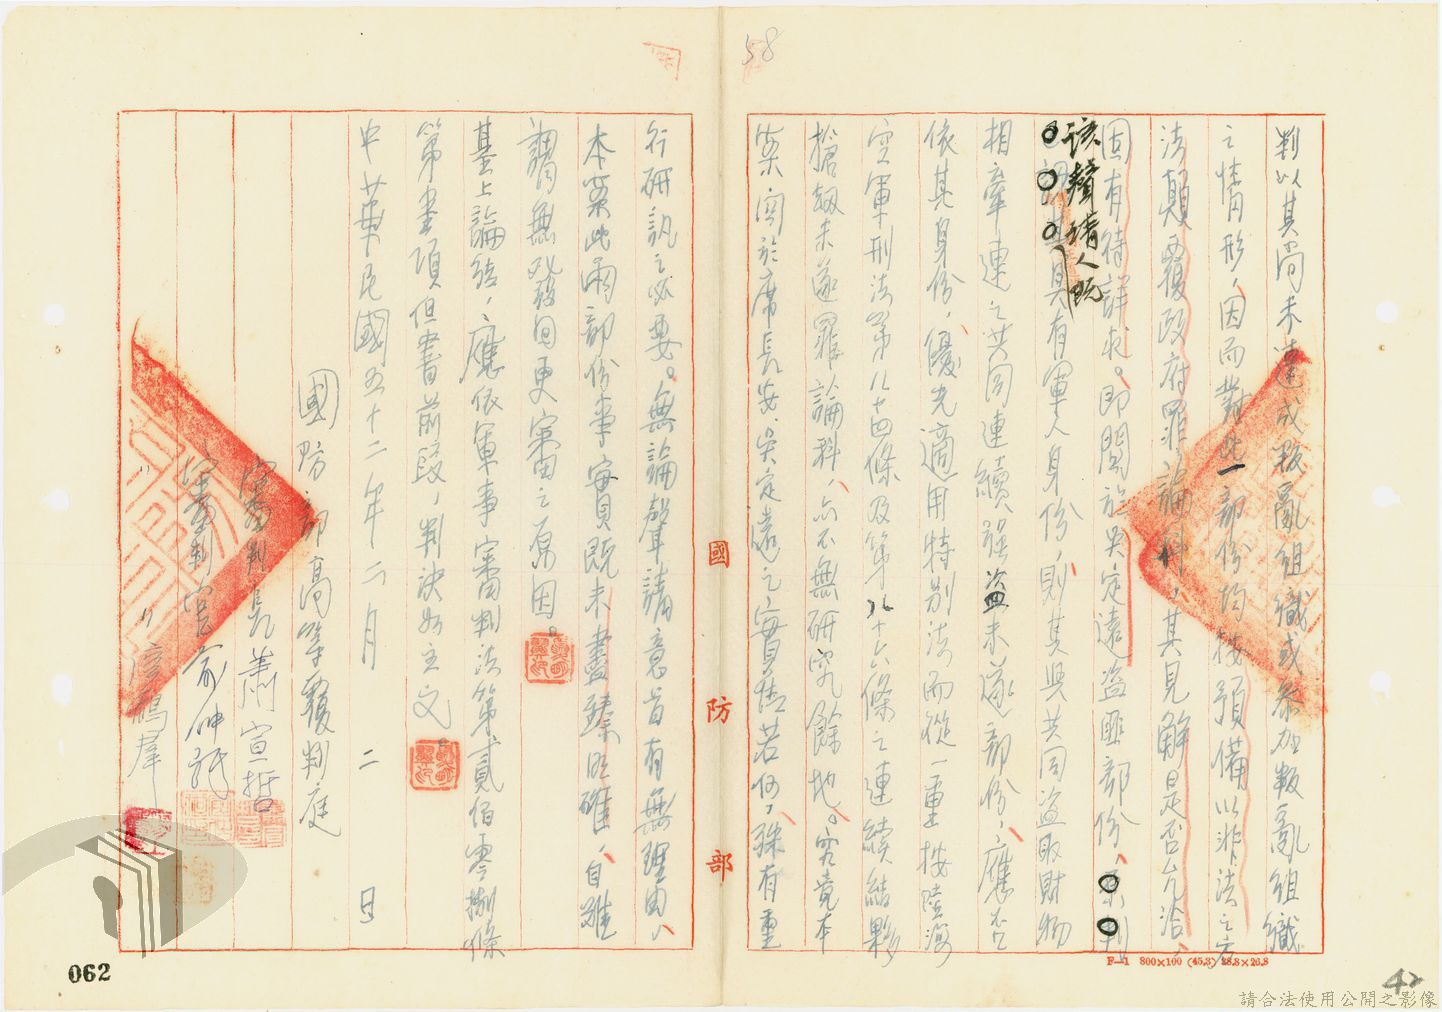 58
判以其尚未達成叛亂組織或參加叛亂組織
之情形，因而對此一部份均按預備以非法之方
法顛覆政府罪論科，其見解是否允洽、
固有待詳求。即關於吳定遠盜匪部份，原判
該聲請人既
具有軍人身份，則其與共同盜取財物
相牽連之共同連續強盜未遂部份，應否
依其身份，優先適用特別法而從一重按陸海
空軍刑法第八十四條及第八十六條之連續結夥
搶劫未遂罪論科，亦不無研究餘地。究竟本
案關於席長安、吳定遠之實情若何，殊有重
行研訊之必要。無論聲請意旨有無理由，
本案此兩部份事實既未盡臻明確，自難
謂無發回更審之原因。
基上論結，應依軍事審判法第貳佰零捌條
第壹項但書前段，判決如主文
中華民國五十二年二月 二 日
國防部高等覆判庭
審判長蕭宣哲
審判官
國防部
F—1 800×100 (45.3) 38.8×26.8
062
42
請合法使用公開之影像